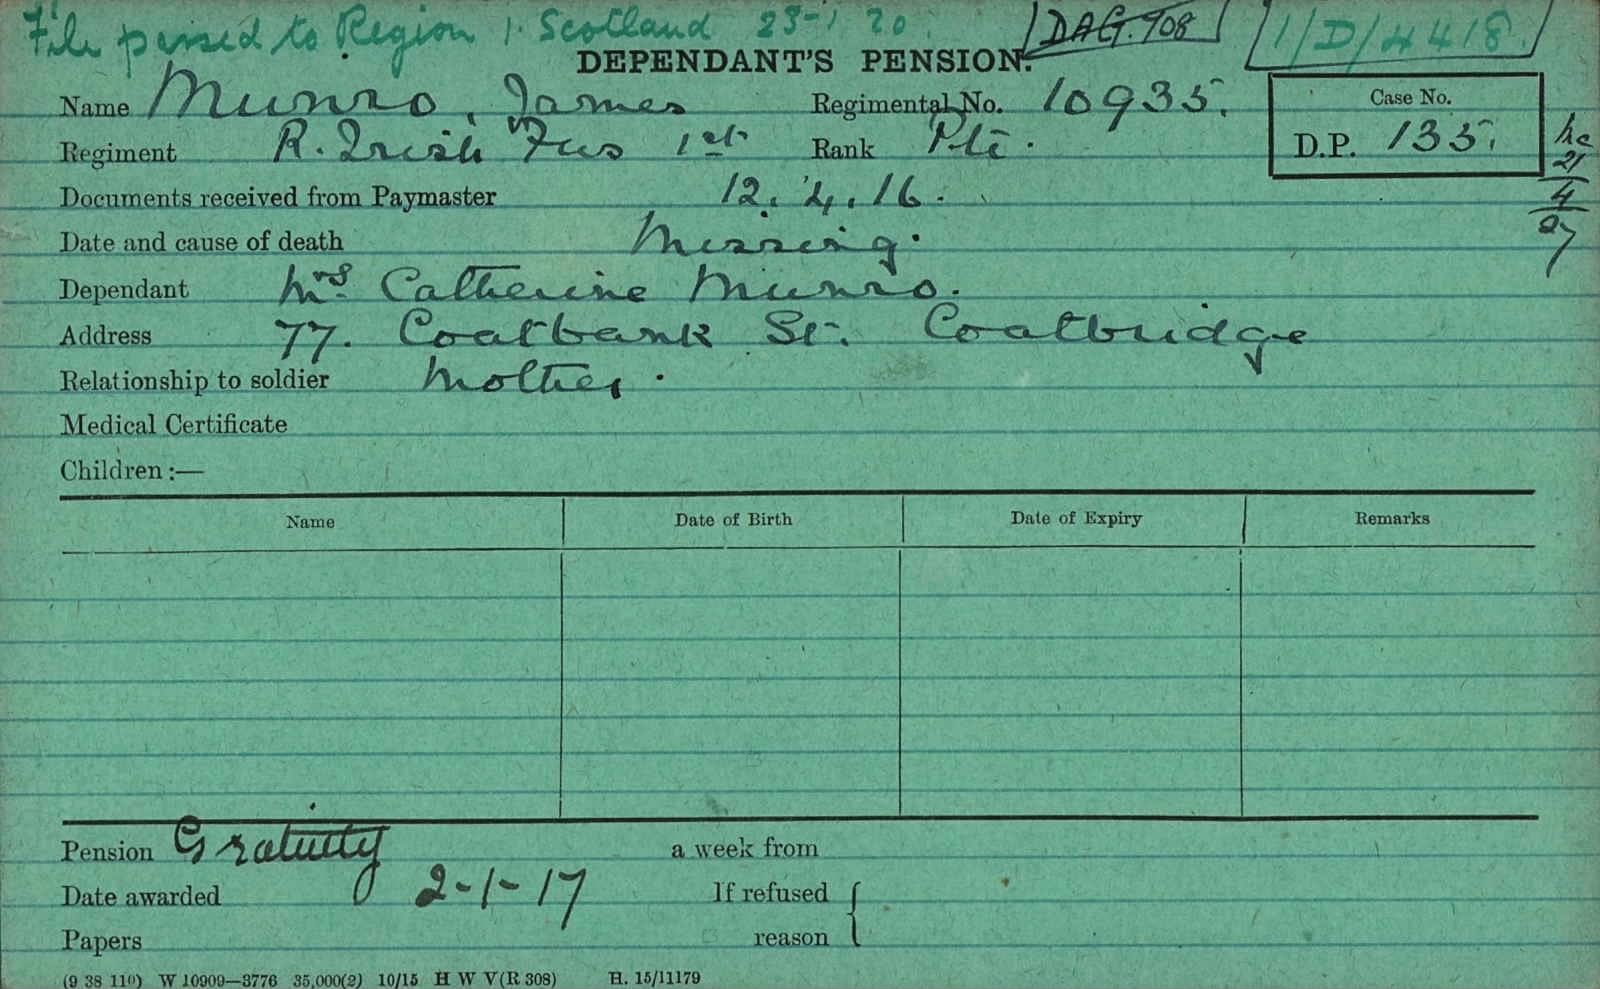 File passed to Region 1. Scotland 23-1 20.
DAG. 708
1/D/4418
DEPENDANT'S PENSION.
Name Munro, James Regimental No. 10935.
Case No.
D.P. 135.
Regiment R. Irish Fus 1st Rank Pte.
21
4
27
Documents received from Paymaster 12.4.16.
Date and cause of death Missing.
Dependant Mrs. Catherine Munro.
Address 77. Coatbank St. Coatbridge
Relationship to soldier Mother.
Medical Certificate
Children :—
Name Date of Birth Date of Expiry Remarks
Pension Gratuity a week from
Date awarded 2-1-17 If refused
Papers reason
(9 38 110) W 10909—3776 35,000(2) 10/15 H W V(R 308) H. 15/11179